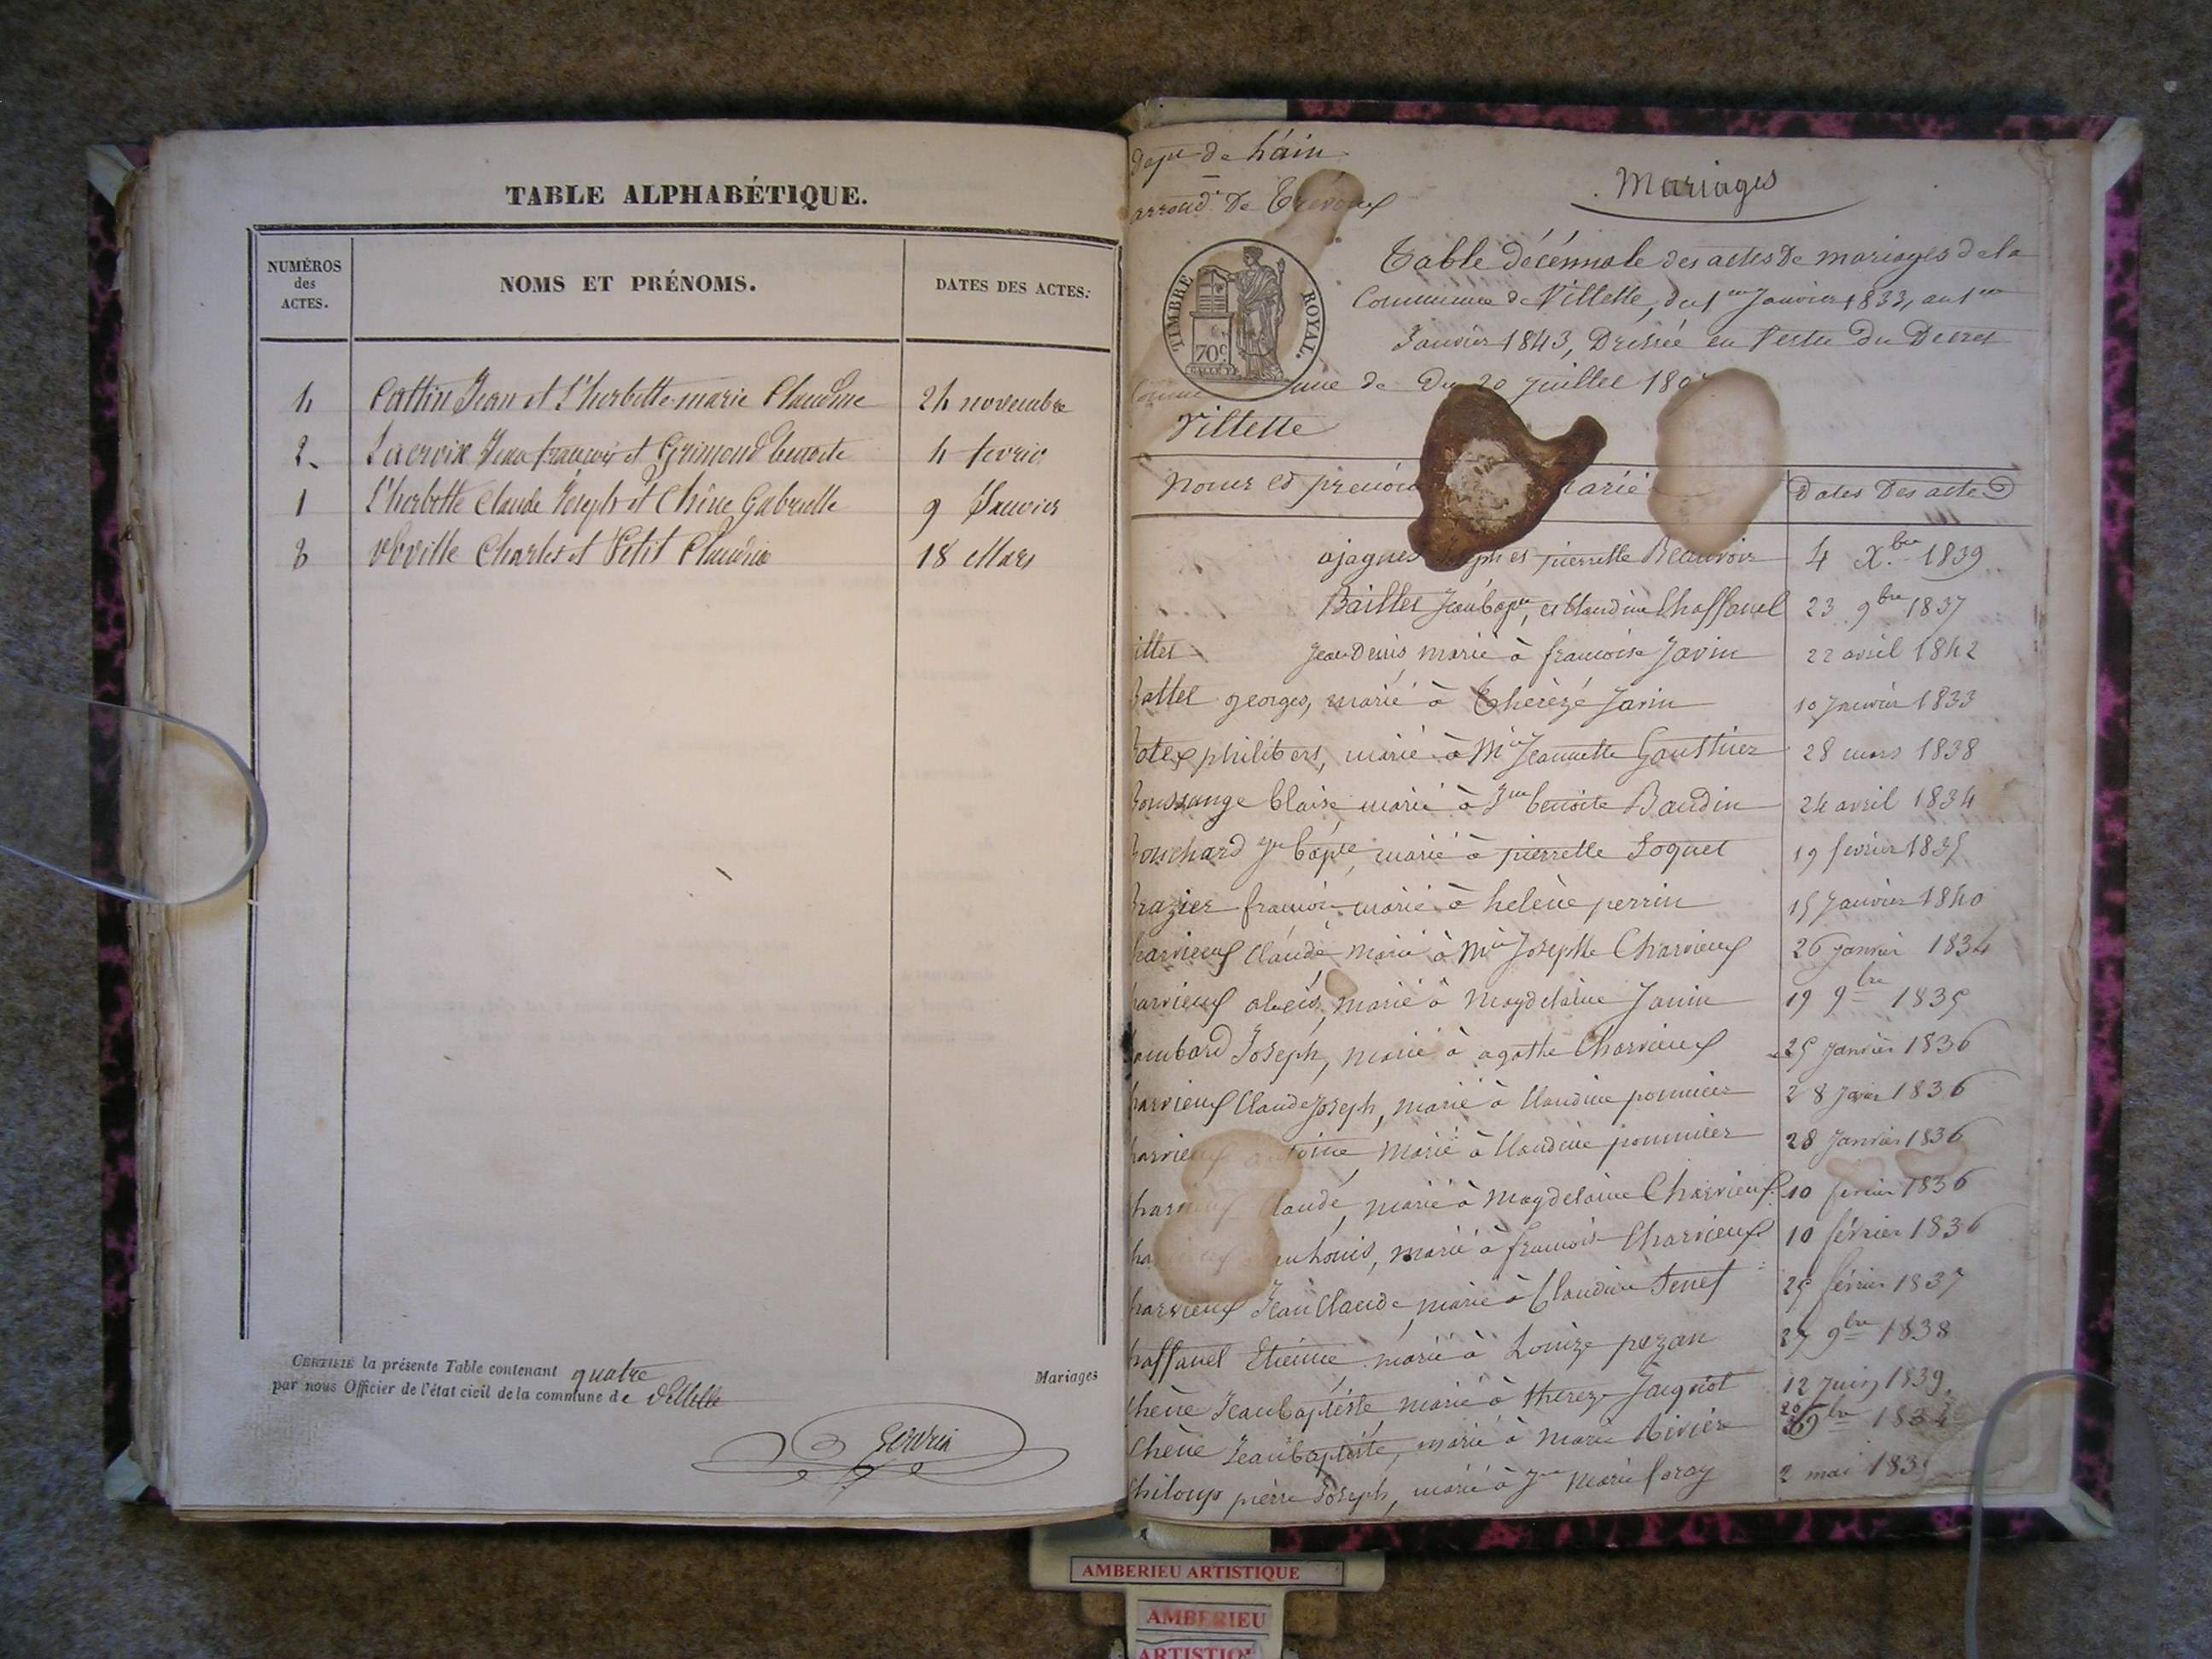 TABLE ALPHABÉTIQUE.
NUMÉROS des ACTES.
NOMS ET PRÉNOMS.
DATES DES ACTES.
4 Cattin Jean et L'herbette marie Claudine 24 novembre
2 Lacroix Jean françois et Grimond benoite 4 fevrier
1 L'herbette Claude Joseph et Chêne Gabrielle 9 Janvier
3 Charles et Petit Claudine 18 Mars
CERTIFIÉ la présente Table contenant quatre
par nous Officier de l'état civil de la commune de Villette
Mariages
Dept de L'ain
arrond. De Trévoux
Mariages
TIMBRE ROYAL.
70c
Table décennale des actes De mariages de la
Commune de Villette, du 1er Janvier 1833, au 1er
Janvier 1843, Dressée en Vertu Du Decret
Du 20 Juillet
Commune de
Villette
Noms et prénoms marié
Dates Des actes
Joseph et pierrette Beauvoir 4 Xbre 1839
Baillet Jeanbapte, et Claudine Chaffanel 23 9bre 1837
Jean Denis marié à francoise Javin 22 avril 1842
georges, marié à Thérèze Janin 10 Janvier 1833
philibert, marié à Mie Jeannette Gauthier 28 mars 1838
Blaise marié à benoite Baudin 24 avril 1834
bapte, marié à pierrette Loquet 19 fevrier 1835
francois marié à helène perrin 15 Janvier 1840
Claude marié à Mie Josephte Charvieux 26 Janvier 1834
marié à Magdelaine Janin 19 9bre 1835
Joseph, marié à agathe Charvieux 25 Janvier 1836
Claude Joseph, marié à Claudine pommier 28 Janvier 1836
marié à Claudine pommier 28 Janvier 1836
Claude, marié à Magdelaine Charvieux 10 fevrier 1836
Louis, marié à francoise Charvieux 10 février 1836
Jean Claude marié à Claudine 25 février 1837
Etienne marié à Louize pezan 27 9bre 1838
Chêne Jeanbaptiste marié à thereze Jacquiot 12 Juin 1839
Chêne Jeanbaptiste, marié à Marie Rivière 20 9bre
Chiloup pierre Joseph, marié à Marie foray 2 mai
AMBERIEU ARTISTIQUE
AMBERIEU
ARTISTIQUE